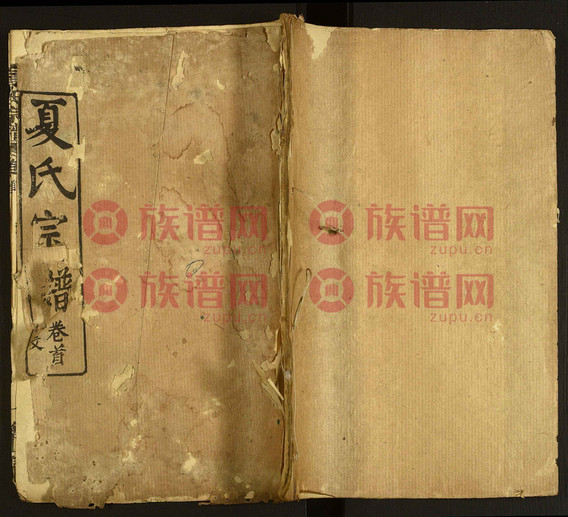 夏氏宗譜
卷首
文
族谱网
zupu.cn
族谱网
zupu.cn
族谱网
zupu.cn
族谱网
zupu.cn